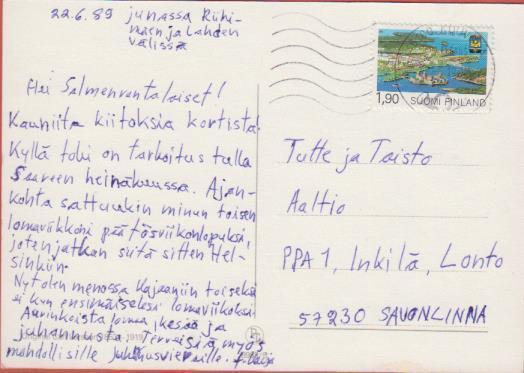 22.6.89 junassa Riihi-
mäen ja Lahden
välissä
Hei Salmenrantalaiset!
Kauniita kiitoksia kortista!
Kyllä toki on tarkoitus tulla
Saareen heinäkuussa. Ajan-
kohta sattuukin minun toisen
lomaviikkoni päätösviikonlopuksi,
joten jatkan siitä sitten Hel-
sinkiin.
Nyt olen menossa Kajaaniin toiseksi
ei kun ensimäiseksi lomaviikoksi.
Aurinkoista lomaa, kesää ja
juhannusta. Terveisiä myös
mahdollisille juhannusvieraille.
1,90 SUOMI FINLAND
Tutte ja Taisto
Aaltio
PPA 1, Inkilä, Lonto
57230 SAVONLINNA